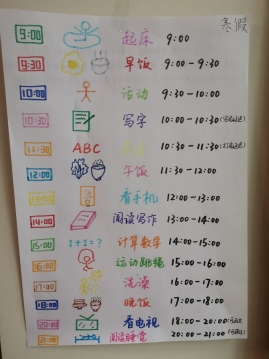 寒假
9:00 起床 9:00
9:30 早饭 9:00-9:30
10:00 活动 9:30-10:00
10:30 写字 10:00-10:30
11:30 ABC 10:30-11:30
12:00 午饭 11:30-12:00
13:00 看手机 12:00-13:00
14:00 阅读写作 13:00-14:00
15:00 1+1=? 计算数学 14:00-15:00
16:00 运动跳绳 15:00-16:00
17:00 洗澡 16:00-17:00
18:00 晚饭 17:00-18:00
20:00 看电视 18:00-20:00
21:00 阅读睡觉 20:00-21:00